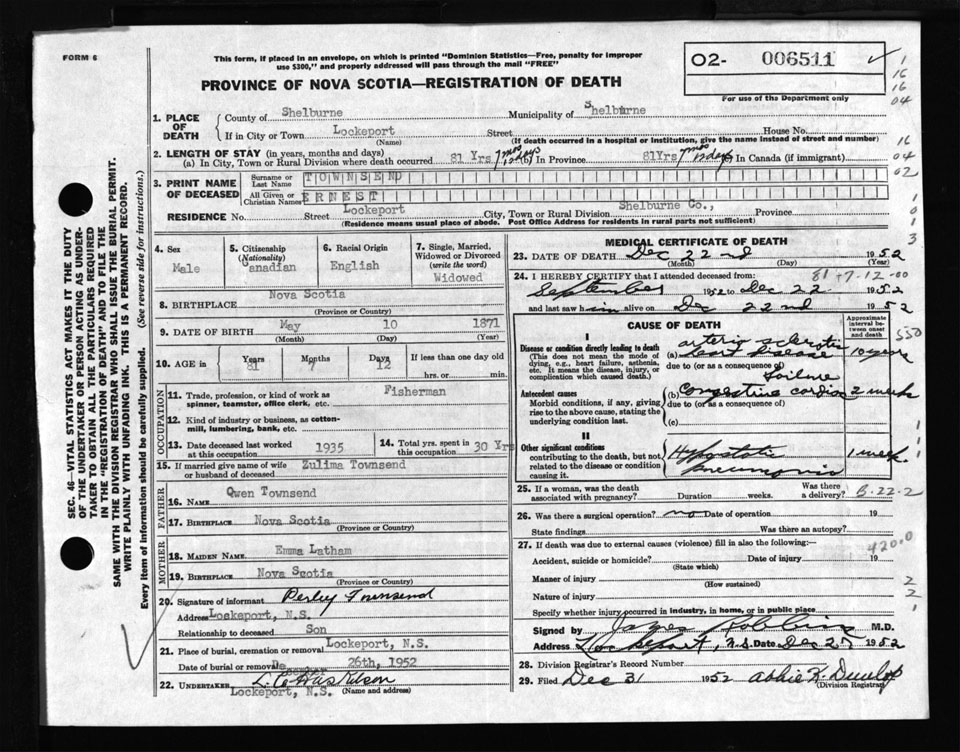 FORM 6
This form, if placed in an envelope, on which is printed "Dominion Statistics—Free, penalty for improper
use $300," and properly addressed will pass through the mail "FREE"
PROVINCE OF NOVA SCOTIA—REGISTRATION OF DEATH
02- 006511
For use of the Department only
1
16
16
04
16
04
02
1
0
1
3
SEC. 46—VITAL STATISTICS ACT MAKES IT THE DUTY
OF THE UNDERTAKER OR PERSON ACTING AS UNDER-
TAKER TO OBTAIN ALL THE PARTICULARS REQUIRED
IN THE "REGISTRATION OF DEATH" AND TO FILE THE
SAME WITH THE DIVISION REGISTRAR WHO SHALL ISSUE THE BURIAL PERMIT.
WRITE PLAINLY WITH UNFADING INK. THIS IS A PERMANENT RECORD.
Every item of information should be carefully supplied. (See reverse side for instructions.)
1. PLACE OF DEATH
County of Shelburne Municipality of Shelburne
If in City or Town Lockeport Street House No.
(Name) (If death occurred in a hospital or institution, give the name instead of street and number)
2. LENGTH OF STAY (in years, months and days)
(a) In City, Town or Rural Division where death occurred 81 Yrs 7 mos 12 days (b) In Province 81Yrs 7 mos 12 days In Canada (if immigrant)
3. PRINT NAME OF DECEASED
Surname or Last Name TOWNSEND
All Given or Christian Names ERNEST
RESIDENCE No. Street Lockeport City, Town or Rural Division Shelburne Co., Province
(Residence means usual place of abode. Post Office Address for residents in rural parts not sufficient)
4. Sex
Male
5. Citizenship (Nationality)
Canadian
6. Racial Origin
English
7. Single, Married, Widowed or Divorced (write the word)
Widowed
8. BIRTHPLACE Nova Scotia
(Province or Country)
9. DATE OF BIRTH May 10 1871
(Month) (Day) (Year)
10. AGE in Years Months Days If less than one day old
81 7 12 hrs. or min.
OCCUPATION
11. Trade, profession, or kind of work as Fisherman
spinner, teamster, office clerk, etc.
12. Kind of industry or business, as cotton-
mill, lumbering, bank, etc.
13. Date deceased last worked at this occupation 1935
14. Total yrs. spent in this occupation 30 Yrs
15. If married give name of wife or husband of deceased Zulima Townsend
FATHER
16. NAME Owen Townsend
17. BIRTHPLACE Nova Scotia
(Province or Country)
MOTHER
18. MAIDEN NAME Emma Latham
19. BIRTHPLACE Nova Scotia
(Province or Country)
20. Signature of informant Perley Townsend
Address Lockeport, N.S.
Relationship to deceased Son
21. Place of burial, cremation or removal Lockeport, N.S.
Date of burial or removal 26th, 1952
22. UNDERTAKER
Lockeport, N.S. (Name and address)
MEDICAL CERTIFICATE OF DEATH
23. DATE OF DEATH Dec 22nd 1952
(Month) (Day) (Year)
81-7-12-00
24. I HEREBY CERTIFY that I attended deceased from:
September 1952 to Dec 22 1952
and last saw him alive on Dec 22nd 1952
CAUSE OF DEATH
Approximate interval between onset and death
550
I
Disease or condition directly leading to death
(This does not mean the mode of dying, e.g., heart failure, asthenia, etc. It means the disease, injury, or complication which caused death.)
(a) arterio sclerotic heart disease 10 years
due to (or as a consequence of)
Antecedent causes
Morbid conditions, if any, giving rise to the above cause, stating the underlying condition last.
(b) Congestive cardiac failure 2 weeks
due to (or as a consequence of)
(c)
II
Other significant conditions
contributing to the death, but not related to the disease or condition causing it.
Hypostatic pneumonia 1 week
1
1
1
25. If a woman, was the death associated with pregnancy? Duration weeks. Was there a delivery?
B-22-2
26. Was there a surgical operation? no Date of operation 19
State findings Was there an autopsy?
27. If death was due to external causes (violence) fill in also the following:—
420.0
Accident, suicide or homicide? Date of injury 19
(State which)
Manner of injury
(How sustained)
2
Nature of injury
2
Specify whether injury occurred in industry, in home, or in public place
1
Signed by James Robbins M.D.
Address Lockeport, N.S. Date Dec 27 1952
28. Division Registrar's Record Number
29. Filed Dec 31 1952 Abbie K. Dunlop
(Division Registrar)